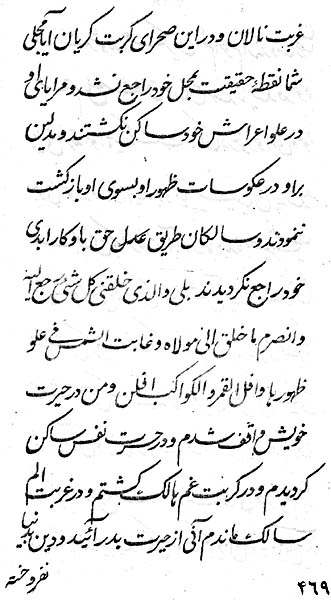 غربت نالان و در این صحرای کربت گریان آیا محلی
شما نقطهٔ حقیقت بمحل خود راجع نشد و مرایای او
در علو اعراش خود ساکن نگشتند و مدلین
براو در عکوسات ظهور او بسوی او بازگشت
ننمودند و سالکان طریق عدل حق باوکار ابدی
خود راجع نگردیدند بلی والذی خلقنی کل شیء رجع الیه
و انصرم ما خلق الی مولاه و غابت الشمس فی علو
ظهورها و افل القمر و الکواکب افلن و من در حیرت
خویش واقف شدم و در حسرت نفس ساکن
گردیدم و در کربت غم هالک گشتم و در غربت الم
سالک ماندم آنی از حیرت بدر آئید و دین بدنیا
نفروخته
۴۶۹